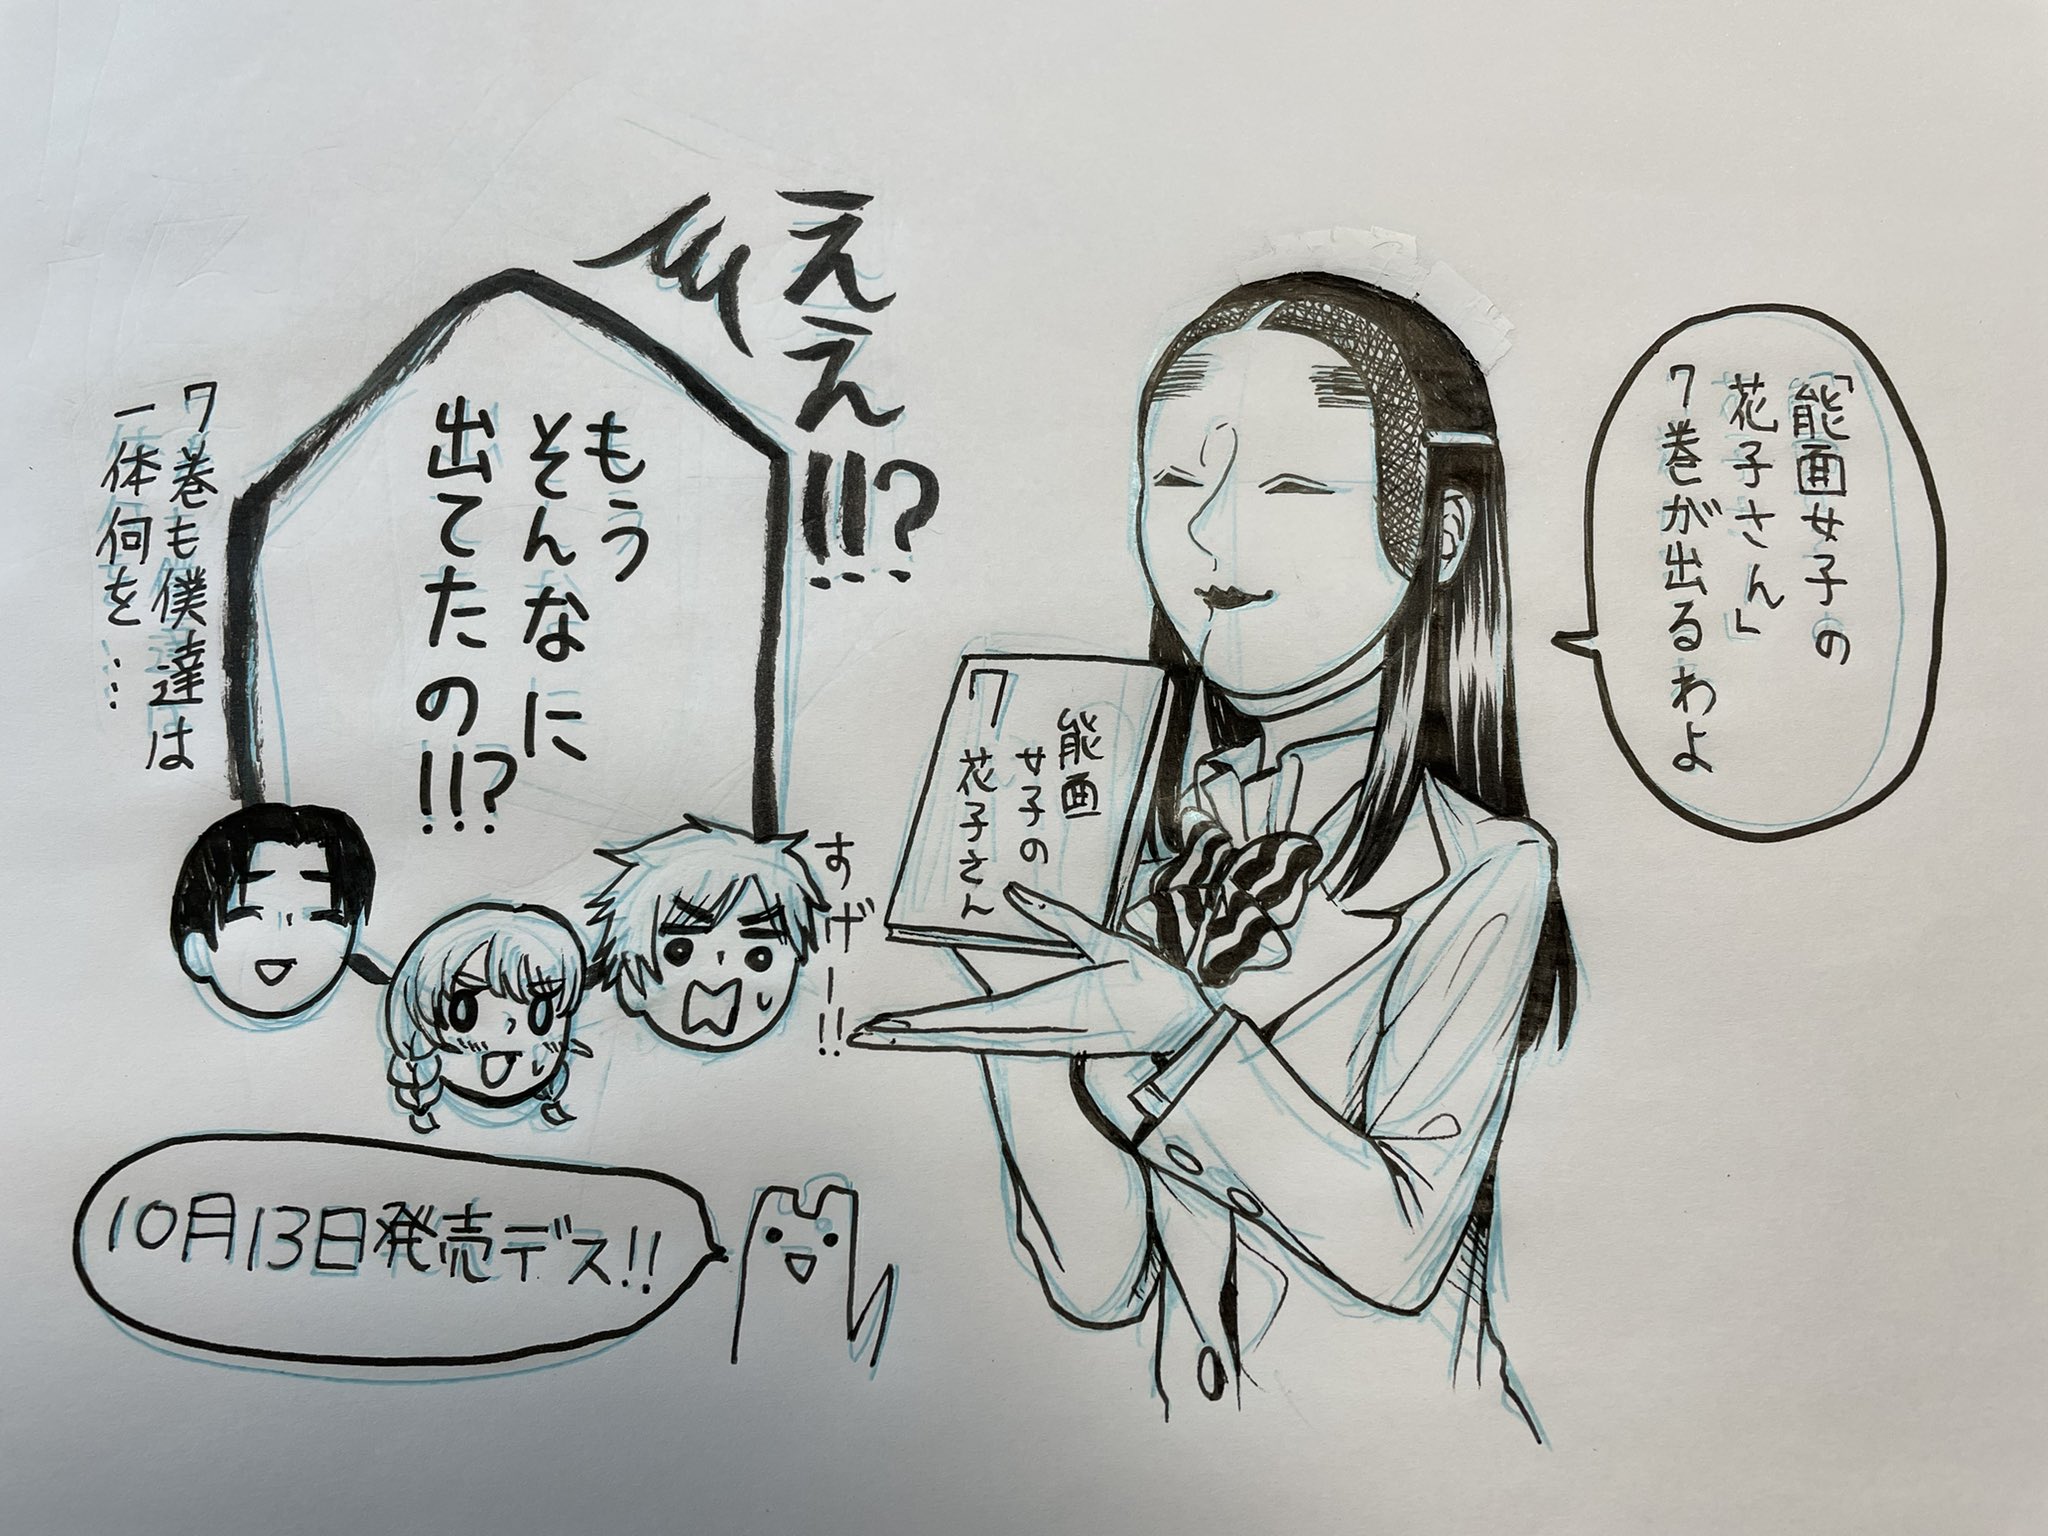 「能面女子の
花子さん」
7巻が出るわよ
能面
女子の
花子さん
7
ええ!!?
もう
そんなに
出てたの!!?
すげー!!
7巻も僕達は
一体何を…
10月13日発売デス!!